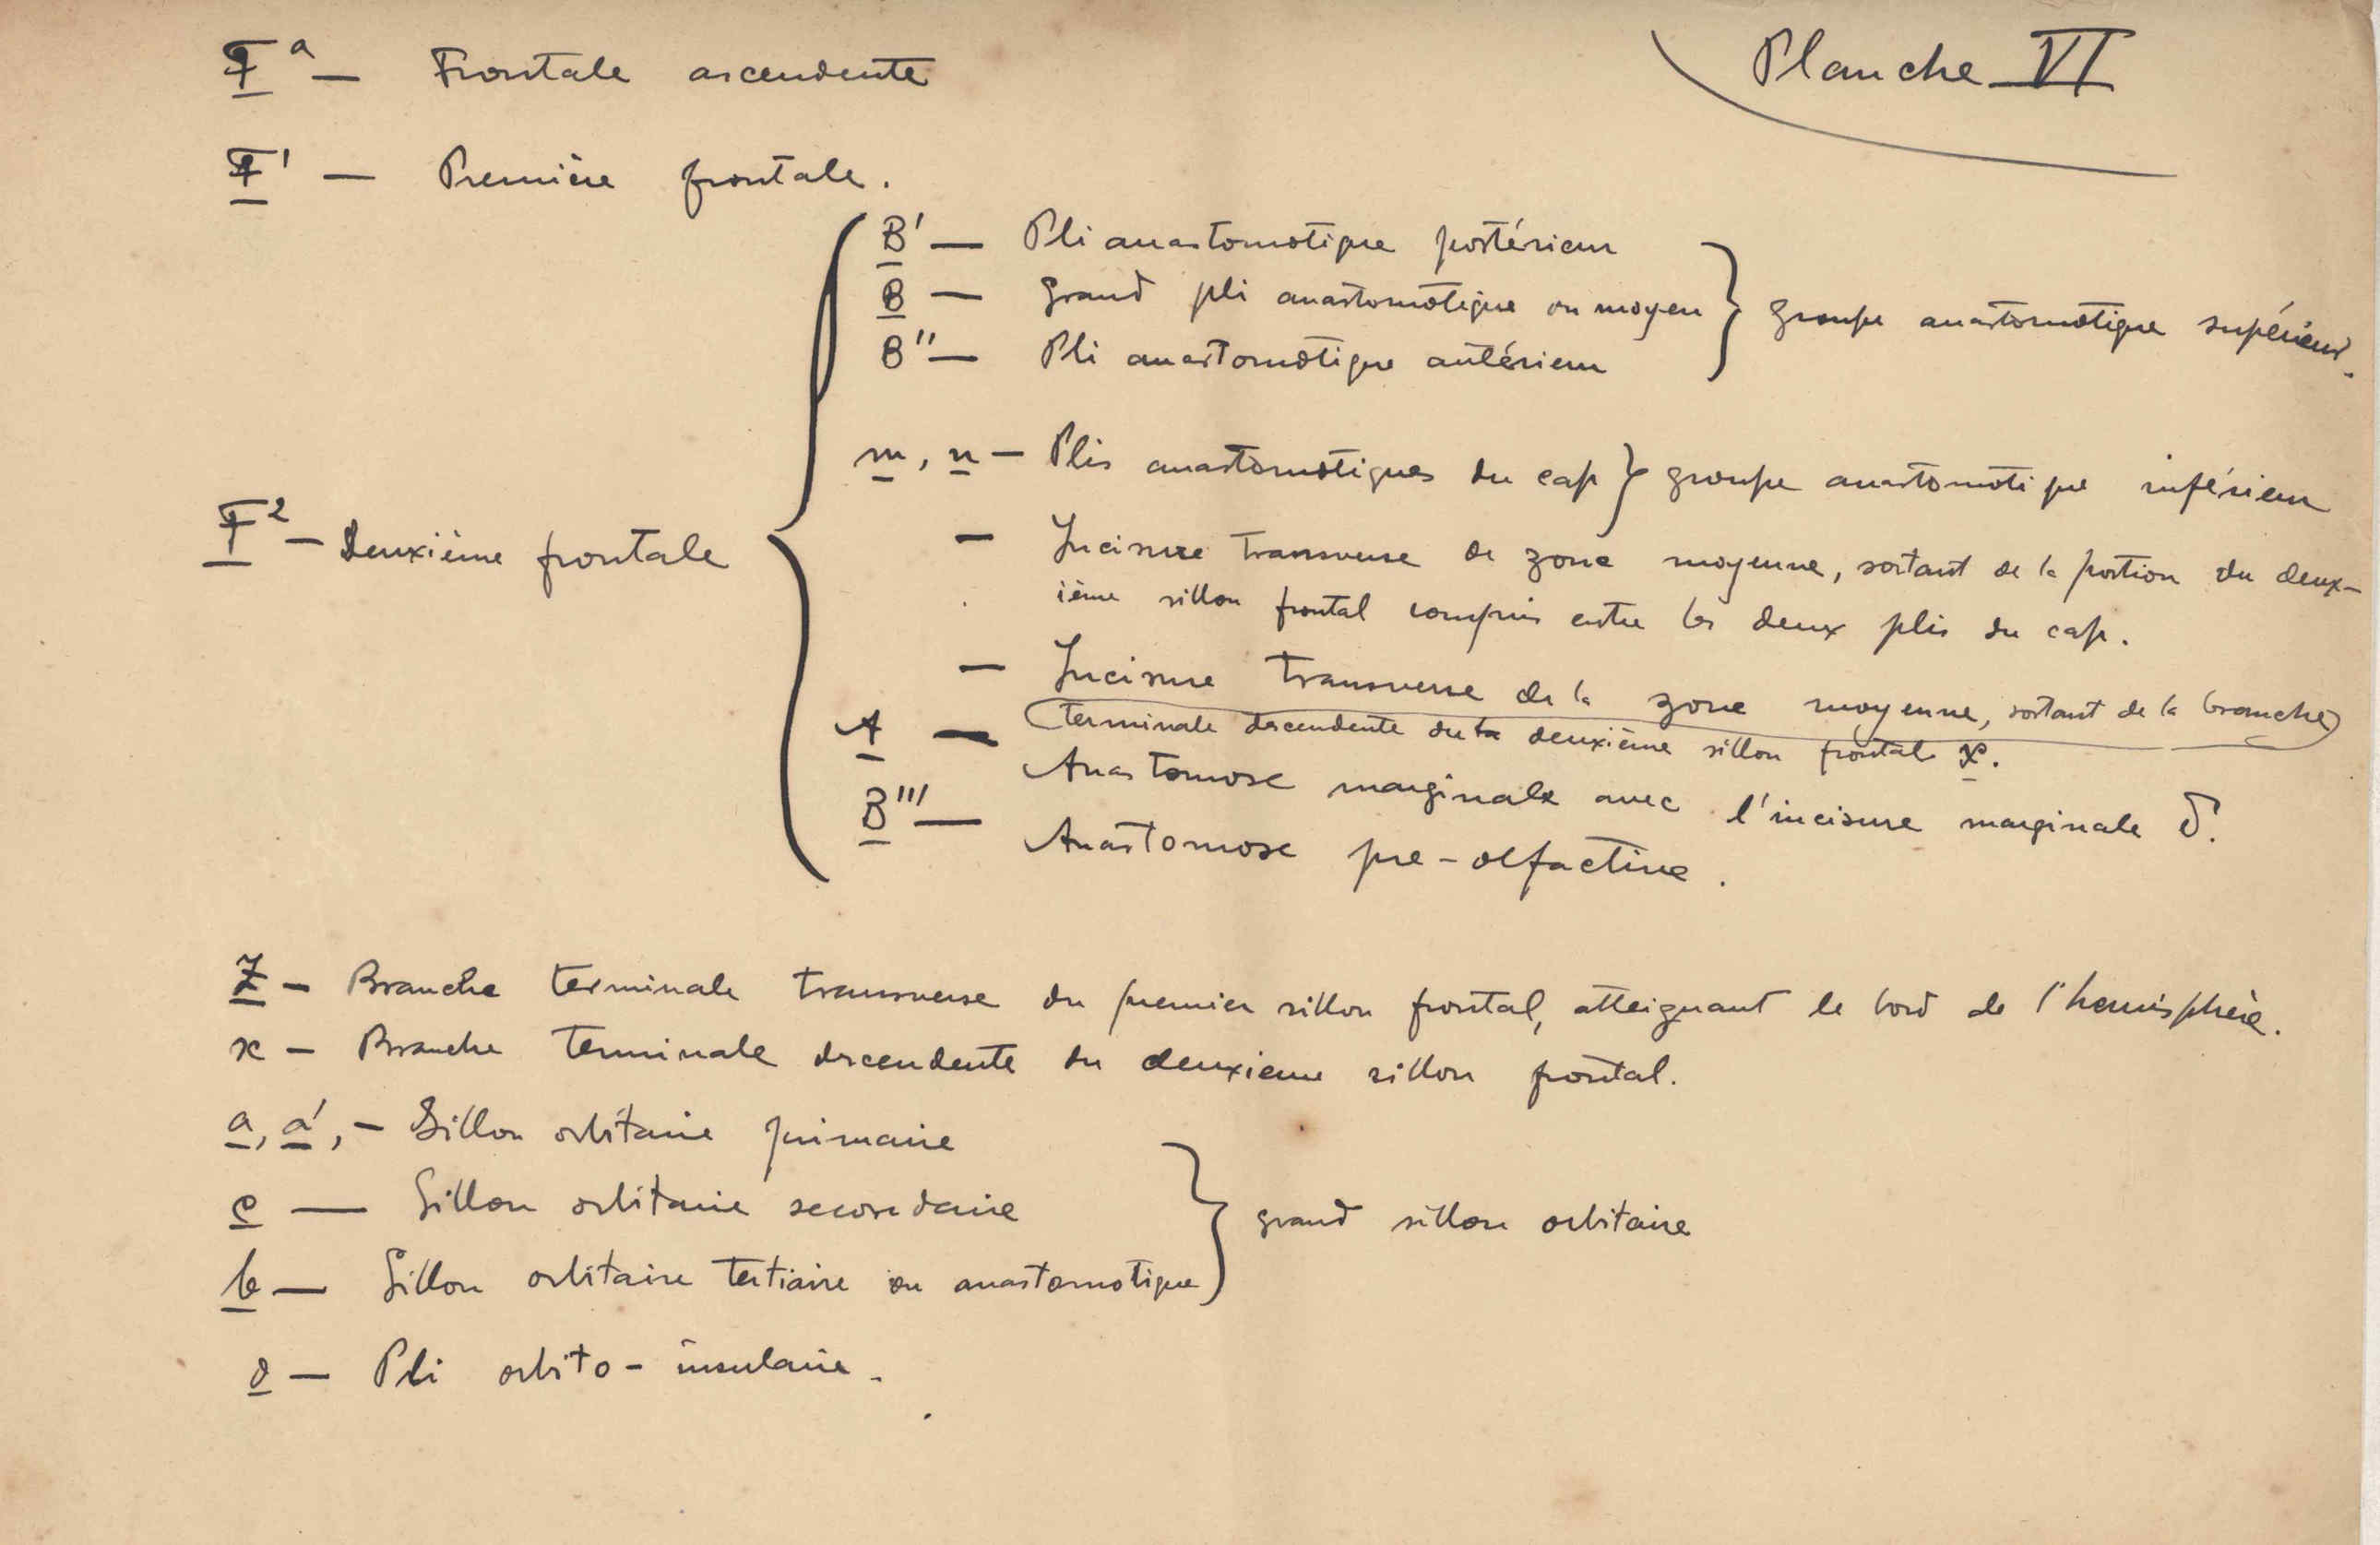 Planche VI
Fª — Frontale ascendente
F' — Première frontale.
B' — Pli anastomotique postérieur
B — Grand pli anastomotique ou moyen } groupe anastomotique supérieur.
B'' — Pli anastomotique antérieur
m, n — Plis anastomotiques du cap } groupe anastomotique inférieur
F² — Deuxième frontale
— Incisure transverse de zone moyenne, sortant de la portion du deux-
ième sillon frontal compris entre les deux plis du cap.
— Incisure transverse de la zone moyenne, sortant de la branche
terminale descendente du deuxième sillon frontal x.
A — Anastomose marginale avec l'incisure marginale δ.
B''' — Anastomose pre-olfactive.
Z — Branche terminale transverse du premier sillon frontal, atteignant le bord de l'hemisphère.
x — Branche terminale descendente du deuxieme sillon frontal.
a, a', — Sillon orbitaire primaire
c — Sillon orbitaire secondaire } grand sillon orbitaire
b — Sillon orbitaire tertiaire ou anastomotique
∂ — Pli orbito-insulaire.